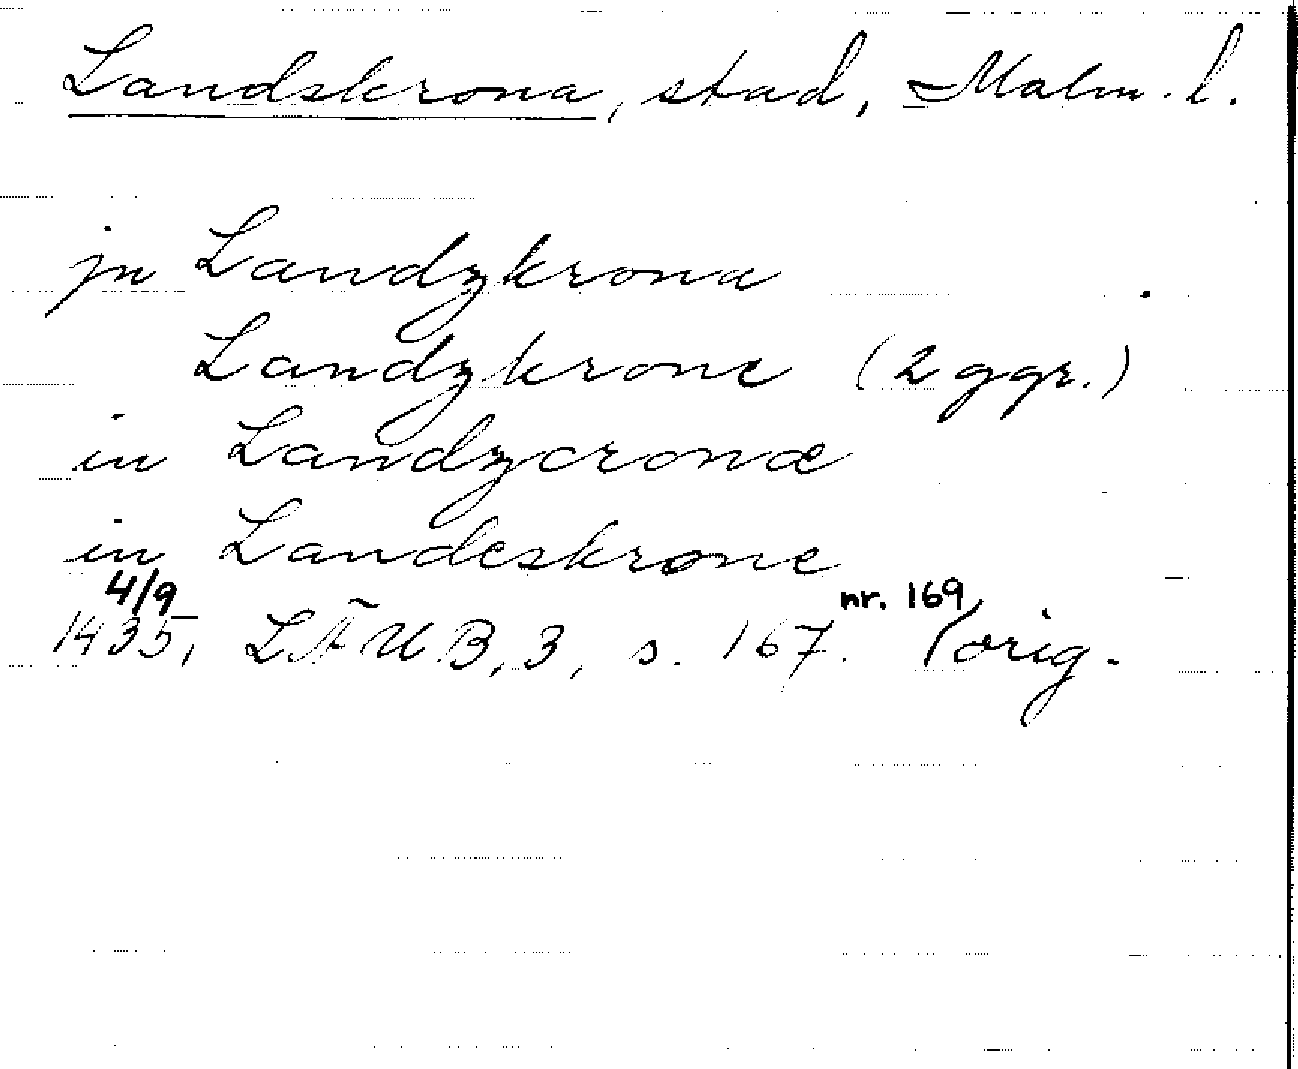 Landskrona, stad, Malm. l.
jn Landzkrona
Landzkrone (2 ggr.)
in Landzcronæ
in Landeskrone
4/9 nr. 169
1435, LÄUB, 3, s. 167. (orig.